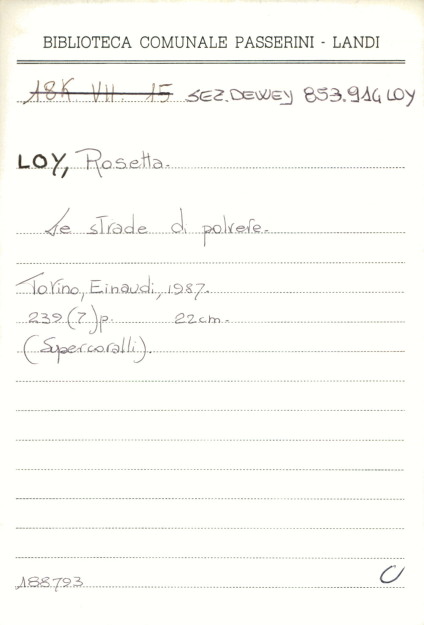 BIBLIOTECA COMUNALE PASSERINI - LANDI
18K VII. 15 SEZ.DEWEY 853.914 LOY
LOY, Rosetta.
Le strade di polvere.
Torino, Einaudi, 1987.
239(7)p. 22cm.
(Supercoralli).
188793